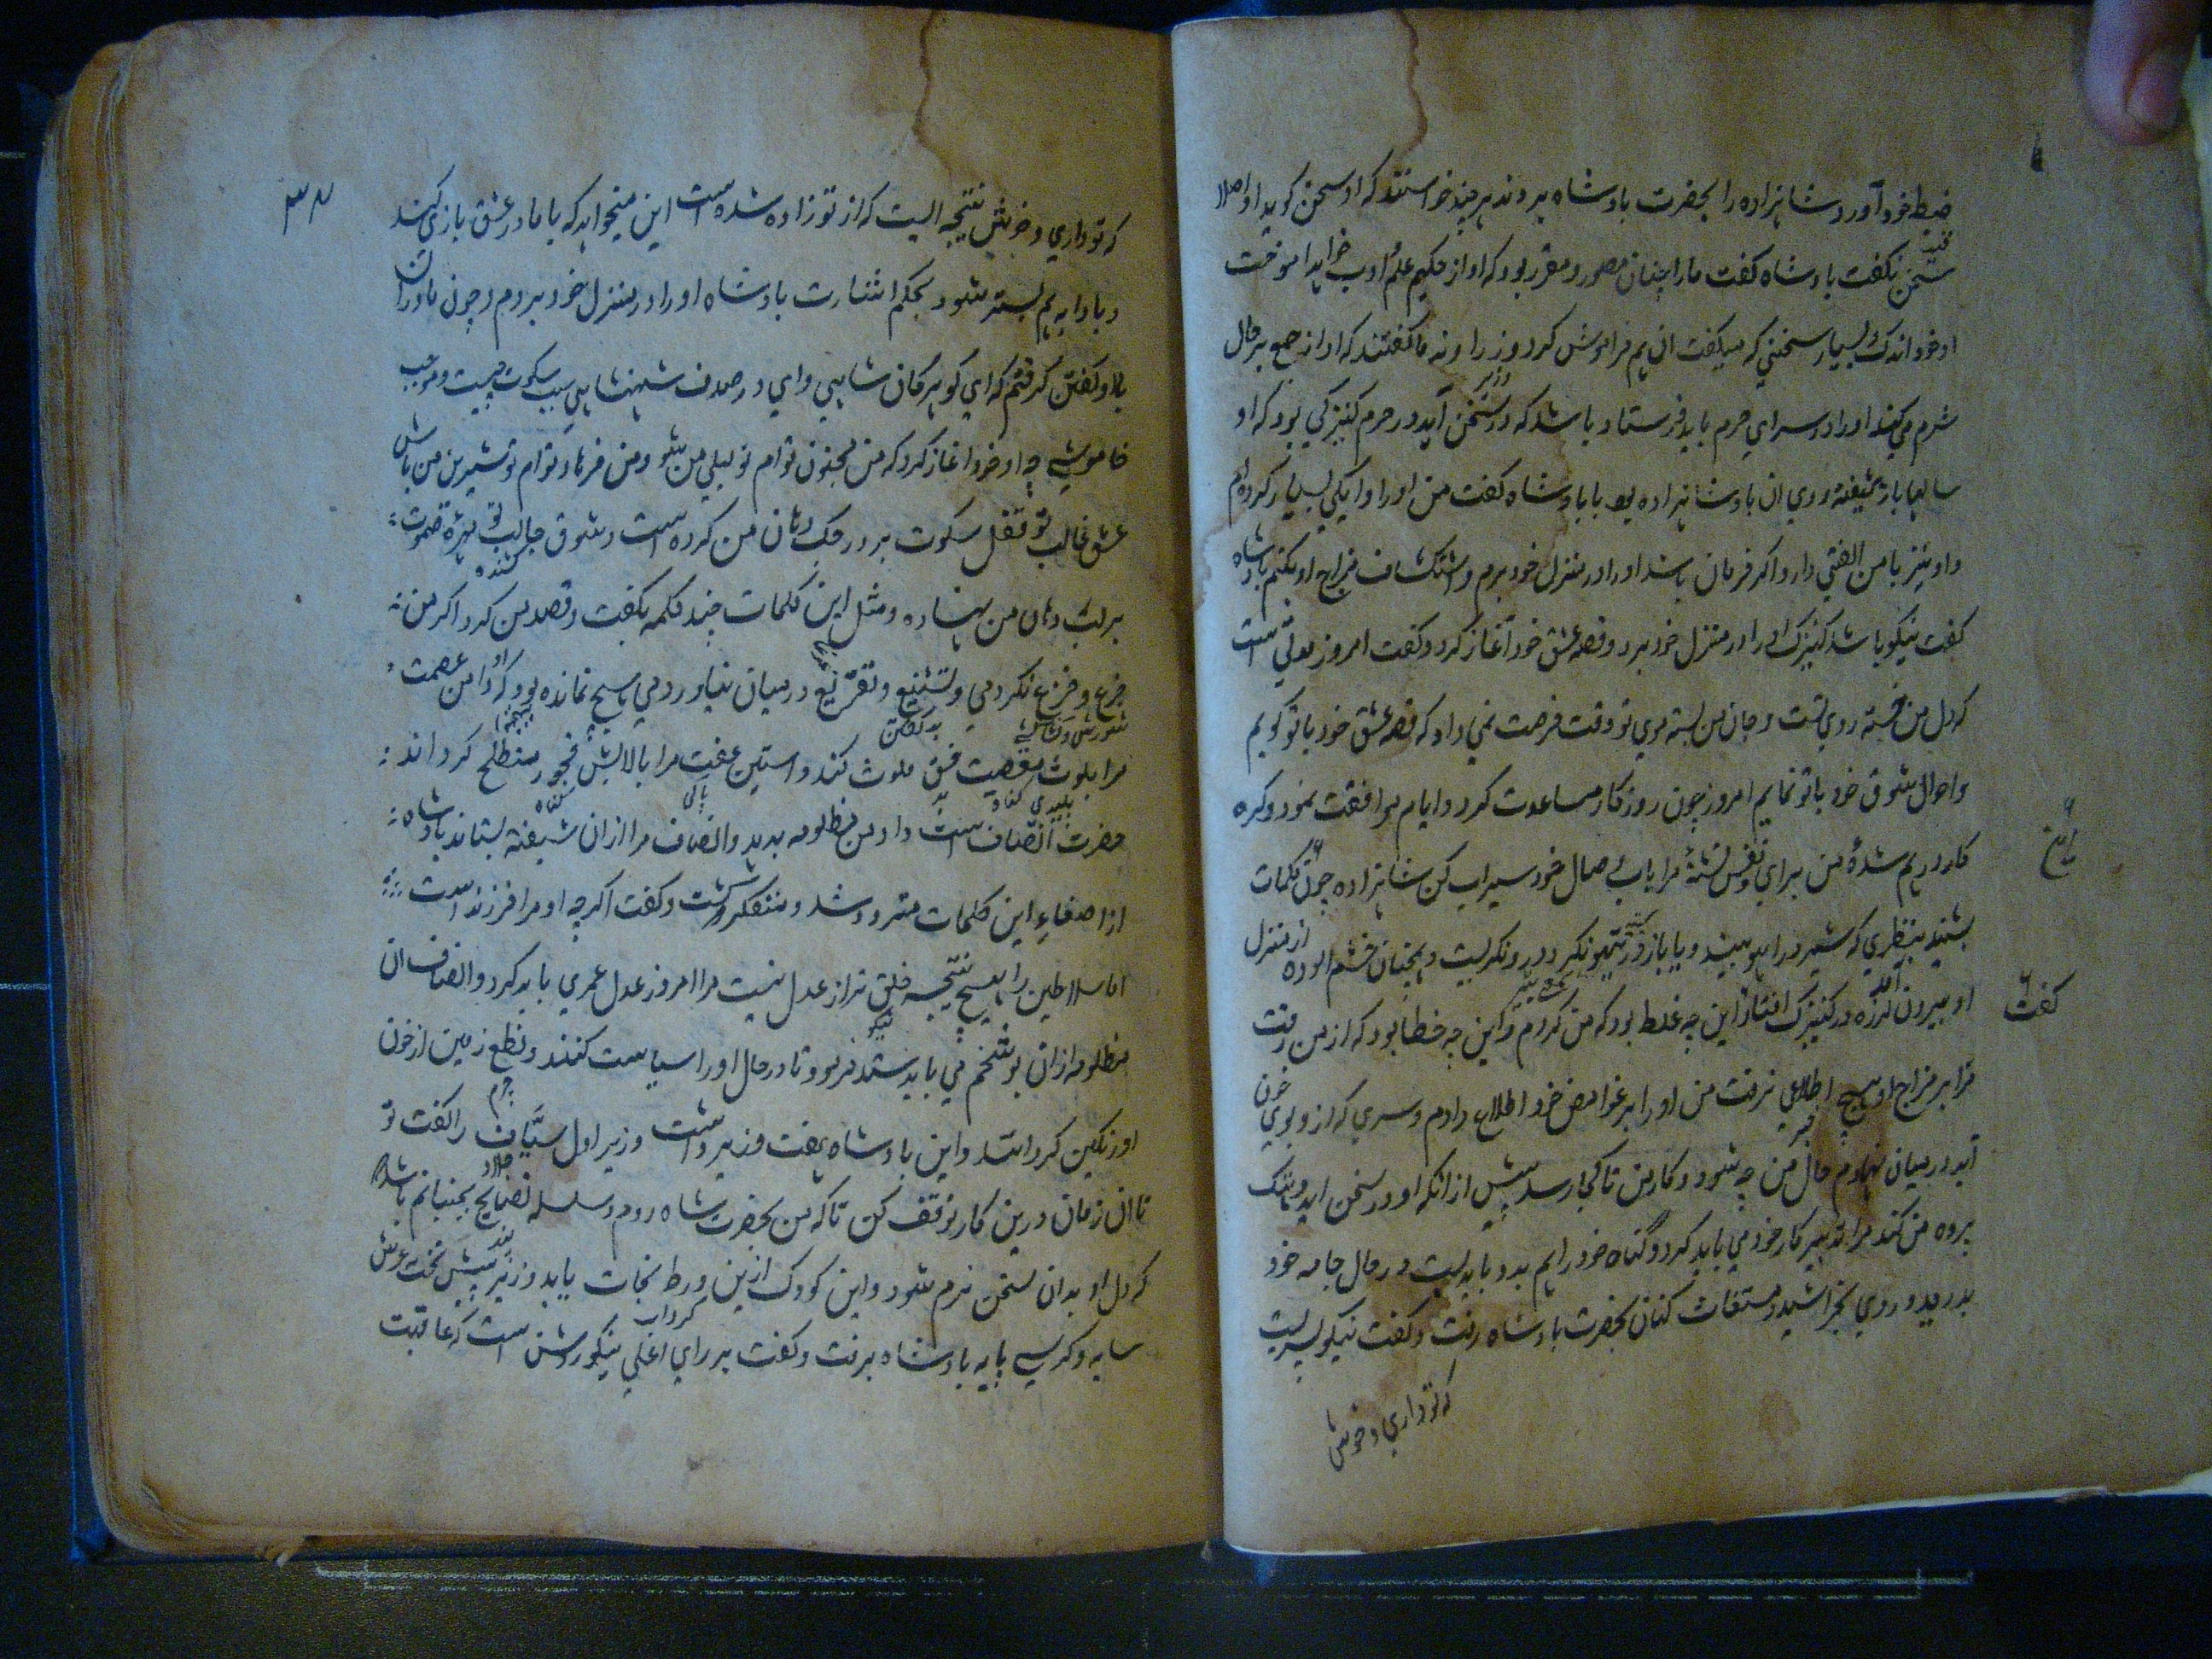 ضبط خود آورد شاهزاده را بحضرت بادشاه بردند هر چند خواستند که او سخن کوید او اصلا
سخن نکفت بادشاه کفت مارا چنان مصور و مقرر بود که او از حکیم علم و ادب خواهد اموخت
او خود اندک و بسیار سخنی که میکفت ان هم فراموش کرد وزراء و ندما کفتند که او از جمع بر حال
شرم میکند او را در سرای حرم باید فرستاد باشد که در سخن آید در حرم کنیزکی بود که او
سالها باز شیفته روی ان بادشاهزاده بود با بادشاه کفت من او را دایکی بسیار کرده ام
و او نیز با من الفتی دارد اکر فرمان باشد او را در منزل خود برم و استکشاف مزاج او بکنم بادشاه
کفت نیکو باشد کنیزک او را در منزل خود برد و قصه عشق خود آغاز کرد و کفت امروز مدتی است
که دل من خسته روی تست و جان من بسته موی تو وقت فرصت نمی داد که قصه عشق خود با تو کویم
و احوال شوق خود با تو نمایم امروز چون روزکار مساعدت کرد و ایام موافقت نمود و کره
کار درهم شدهٔ من برای و نفس تشنهٔ مرا باب وصال خود سیراب کن شاهزاده چون کلمات
بشنید بنظری که شیر در اهو بیند و یا باز در تیهو نکرد در و نکریست و همچنان خشم الوده از منزل
او بیرون آمد لرزه در کنیزک افتاد این چه غلط بود که من کردم و این چه خطا بود که از من رفت
کفت
مرا بر مزاج او هیچ اطلاعی نرفت من او را بر غوامض خود اطلاع دادم و سری که ازو بوی خون
آید در میان نهادم حال من چه شود و کار من تا کجا رسد پیش از انکه او در سخن اید و هتک
پرده من کند مرا تدبیر کار خود می باید کرد و کناه خود را هم بدو باید بست در حال جامه خود
بدرید و روی بخراشید و مستغاث کنان بحضرت بادشاه رفت و کفت نیکو پسریست
که تو داری و خوش
۳۴
که تو داری و خوش نتیجه ایست که از تو زاده شده است این میخواهد که با ما در عشق بازی کند
و با دایه هم بستر شود بحکم اشارت بادشاه او را در منزل خود بردم و چون مادران
با او کفتن کرفتم که ای کوهر کان شاهی و ای در صدف شهنشاهی سبب سکوت چیست و موجب
خاموشی چه او خود اغاز کرد که من مجنون توام تو لیلی من شو و من فرهاد توام تو شیرین من باش
عشق غالب تو قفل سکوت بر درجک دهان من کرده است و شوق جالب تو مهره صموت
کشنده
بر لب دهان من نهاده و مثل این کلمات چند کلمه بکفت و قصد من کرد اکر من
جزع و فزع نکردمی و تشنیع و تقریع در میان نیاوردمی هیچ نمانده بود که او دامن عصمت
مرا بلوث معصیت فسق ملوث کند و استین عفت مرا بالایش فجور متطلخ کرداند
پلیدی کناه
پاکی
کناه
حضرت انصاف است داد من مظلومه بدهد و انصاف مرا ازان شیفته بستاند بادشاه
از اصغاءِ این کلمات متردد شد و متفکر کشت و کفت اکرچه او مرا فرزند است
اما سلاطین را هیچ نتیجه خلق تر از عدل نیست مرا امروز عدل عمری باید کرد و انصاف ان
مظلومه ازان بوشحم می باید ستد فرمود تا در حال او را سیاست کنند و نطع زمین از خون
چرم
او رنکین کردانند و این بادشاه هفت وزیر داشت وزیر اول سیّاف را کفت تو
جلاد
تا ان زمان درین کار توقف کن تا که من بحضرت شاه روم و سلسله نصایح بجنبانم باشد
پند
که دل او بدان سخن نرم شود و این کودک ازین ورطه نجات یابد وزیر پیش تخت عرش
کرداب
سایه و کرسی پایه بادشاه برفت و کفت بر رای اعلی نیکو روشن است که عاقبت